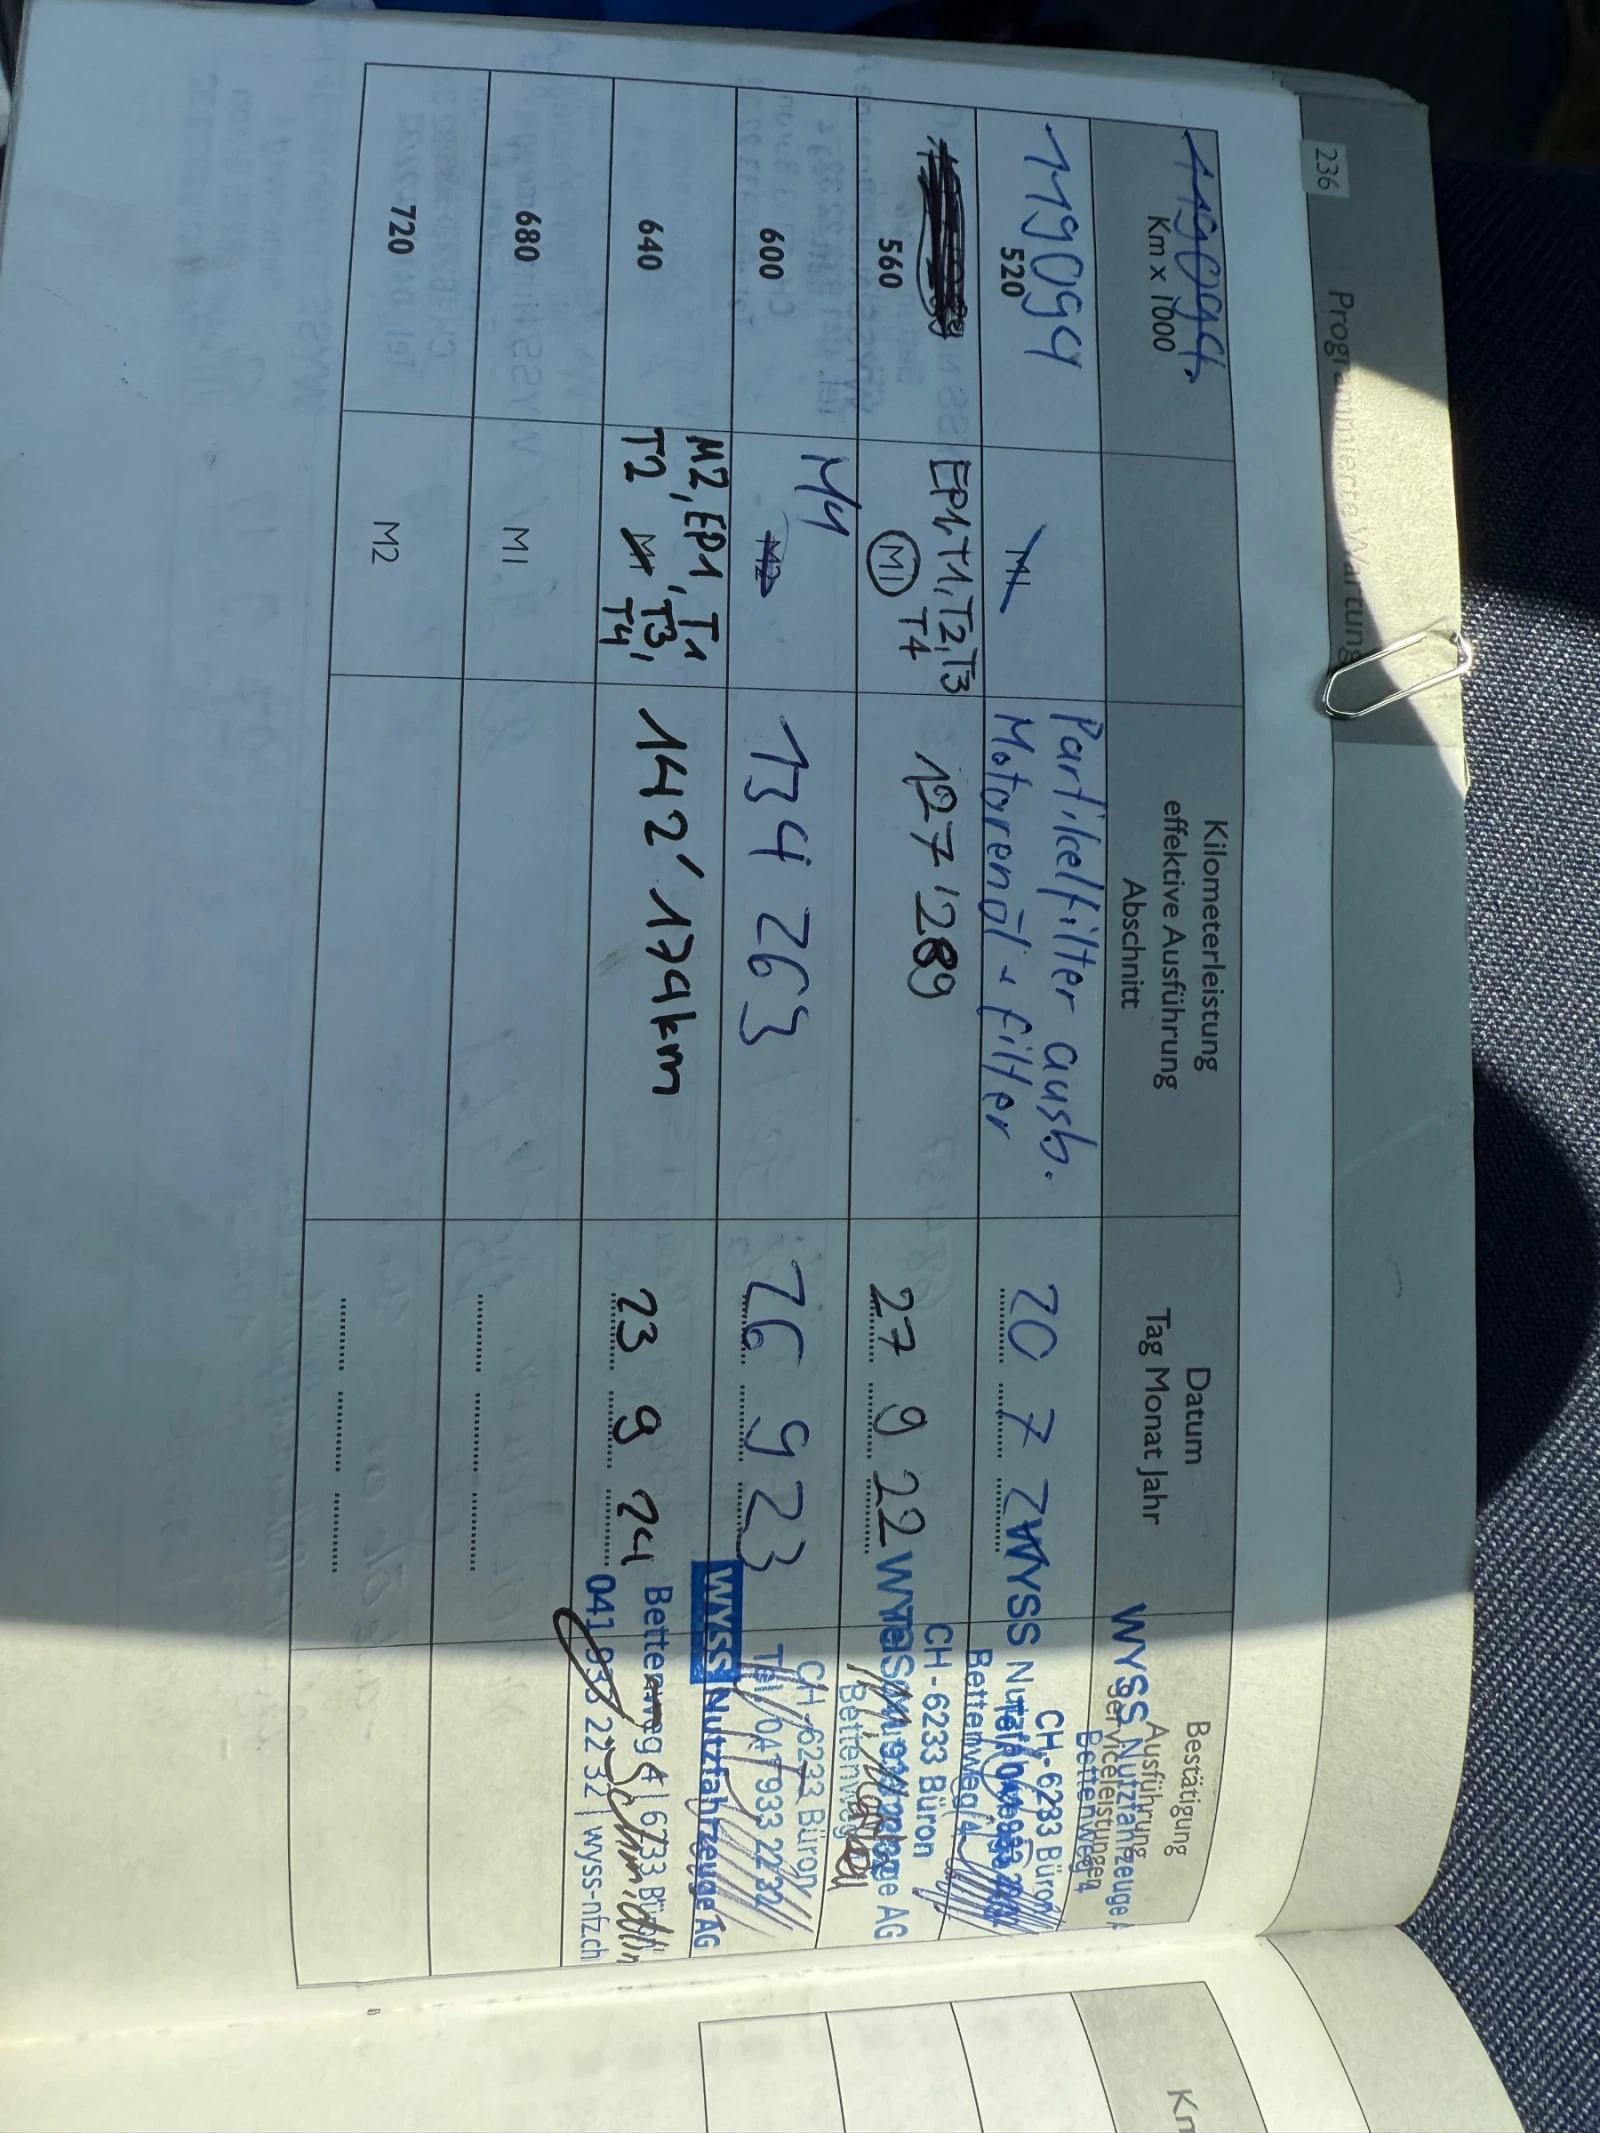 236 Programmierte Wartung
119094
Km x 1000
Kilometerleistung
effektive Ausführung
Abschnitt
Datum
Tag Monat Jahr
Bestätigung
Ausführung
Serviceleistungen
WYSS Nutzfahrzeuge
Bettenweg 4
CH-6233 Büron
119094
520
M1
Partikelfilter ausb.
Motorenöl + filter
20 7
WYSS
Bettenweg 4
CH-6233 Büron
560
EP1, T1, T2, T3
M1 T4
127'289
27 9 22
AG
Bettenweg
CH-6233 Büron
600
M4
M2
134 263
26 9 23
Tel. 041 933 22 32
WYSS Nutzfahrzeuge AG
640
M2, EP1, T1
T2 M1 T3,
T4
142'179km
23 9 24
Bettenweg 4 | 6233 Büron
041 933 22 32 | wyss-nfz.ch
Schmidlin
680
M1
720
M2
Km